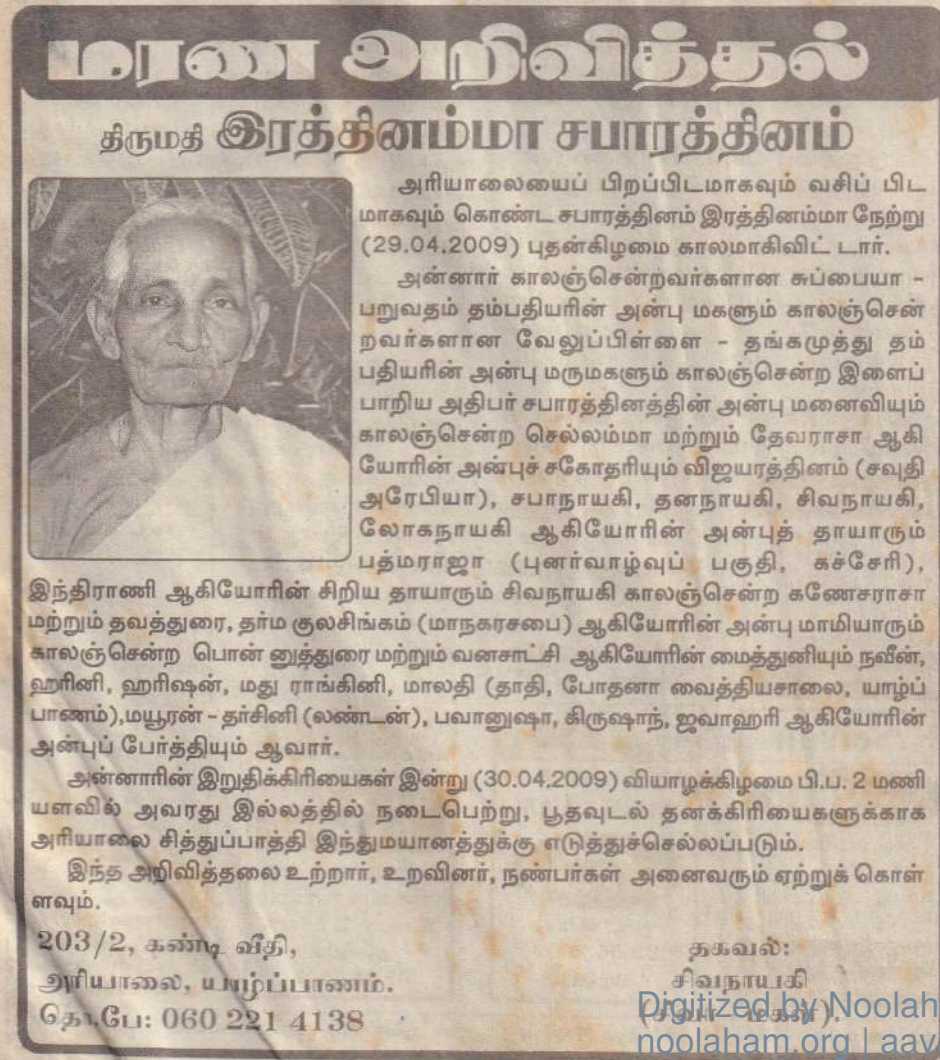 மரண அறிவித்தல்
திருமதி இரத்தினம்மா சபாரத்தினம்
அரியாலையைப் பிறப்பிடமாகவும் வசிப் பிட
மாகவும் கொண்ட சபாரத்தினம் இரத்தினம்மா நேற்று
(29.04.2009) புதன்கிழமை காலமாகிவிட் டார்.
அன்னார் காலஞ்சென்றவர்களான சுப்பையா –
பறுவதம் தம்பதியரின் அன்பு மகளும் காலஞ்சென்
றவர்களான வேலுப்பிள்ளை – தங்கமுத்து தம்
பதியரின் அன்பு மருமகளும் காலஞ்சென்ற இளைப்
பாறிய அதிபர் சபாரத்தினத்தின் அன்பு மனைவியும்
காலஞ்சென்ற செல்லம்மா மற்றும் தேவராசா ஆகி
யோரின் அன்புச் சகோதரியும் விஜயரத்தினம் (சவுதி
அரேபியா), சபாநாயகி, தனநாயகி, சிவநாயகி,
லோகநாயகி ஆகியோரின் அன்புத் தாயாரும்
பத்மராஜா (புனர்வாழ்வுப் பகுதி, கச்சேரி),
இந்திராணி ஆகியோரின் சிறிய தாயாரும் சிவநாயகி காலஞ்சென்ற கணேசராசா
மற்றும் தவத்துரை, தர்ம குலசிங்கம் (மாநகரசபை) ஆகியோரின் அன்பு மாமியாரும்
காலஞ்சென்ற பொன் னுத்துரை மற்றும் வனசாட்சி ஆகியோரின் மைத்துனியும் நவீன்,
ஹரினி, ஹரிஷன், மது ராங்கினி, மாலதி (தாதி, போதனா வைத்தியசாலை, யாழ்ப்
பாணம்),மயூரன் – தர்சினி (லண்டன்), பவானுஷா, கிருஷாந், ஜவாஹரி ஆகியோரின்
அன்புப் பேர்த்தியும் ஆவார்.
அன்னாரின் இறுதிக்கிரியைகள் இன்று (30.04.2009) வியாழக்கிழமை பி.ப. 2 மணி
யளவில் அவரது இல்லத்தில் நடைபெற்று, பூதவுடல் தனக்கிரியைகளுக்காக
அரியாலை சித்துப்பாத்தி இந்துமயானத்துக்கு எடுத்துச்செல்லப்படும்.
இந்த அறிவித்தலை உற்றார், உறவினர், நண்பர்கள் அனைவரும் ஏற்றுக் கொள்
ளவும்.
203/2, கண்டி வீதி,
அரியாலை, யாழ்ப்பாணம்.
தொ.பே: 060 221 4138
தகவல்:
சிவநாயகி
(சிவா – மகள்).
Digitized by Noolah
noolaham.org | aav